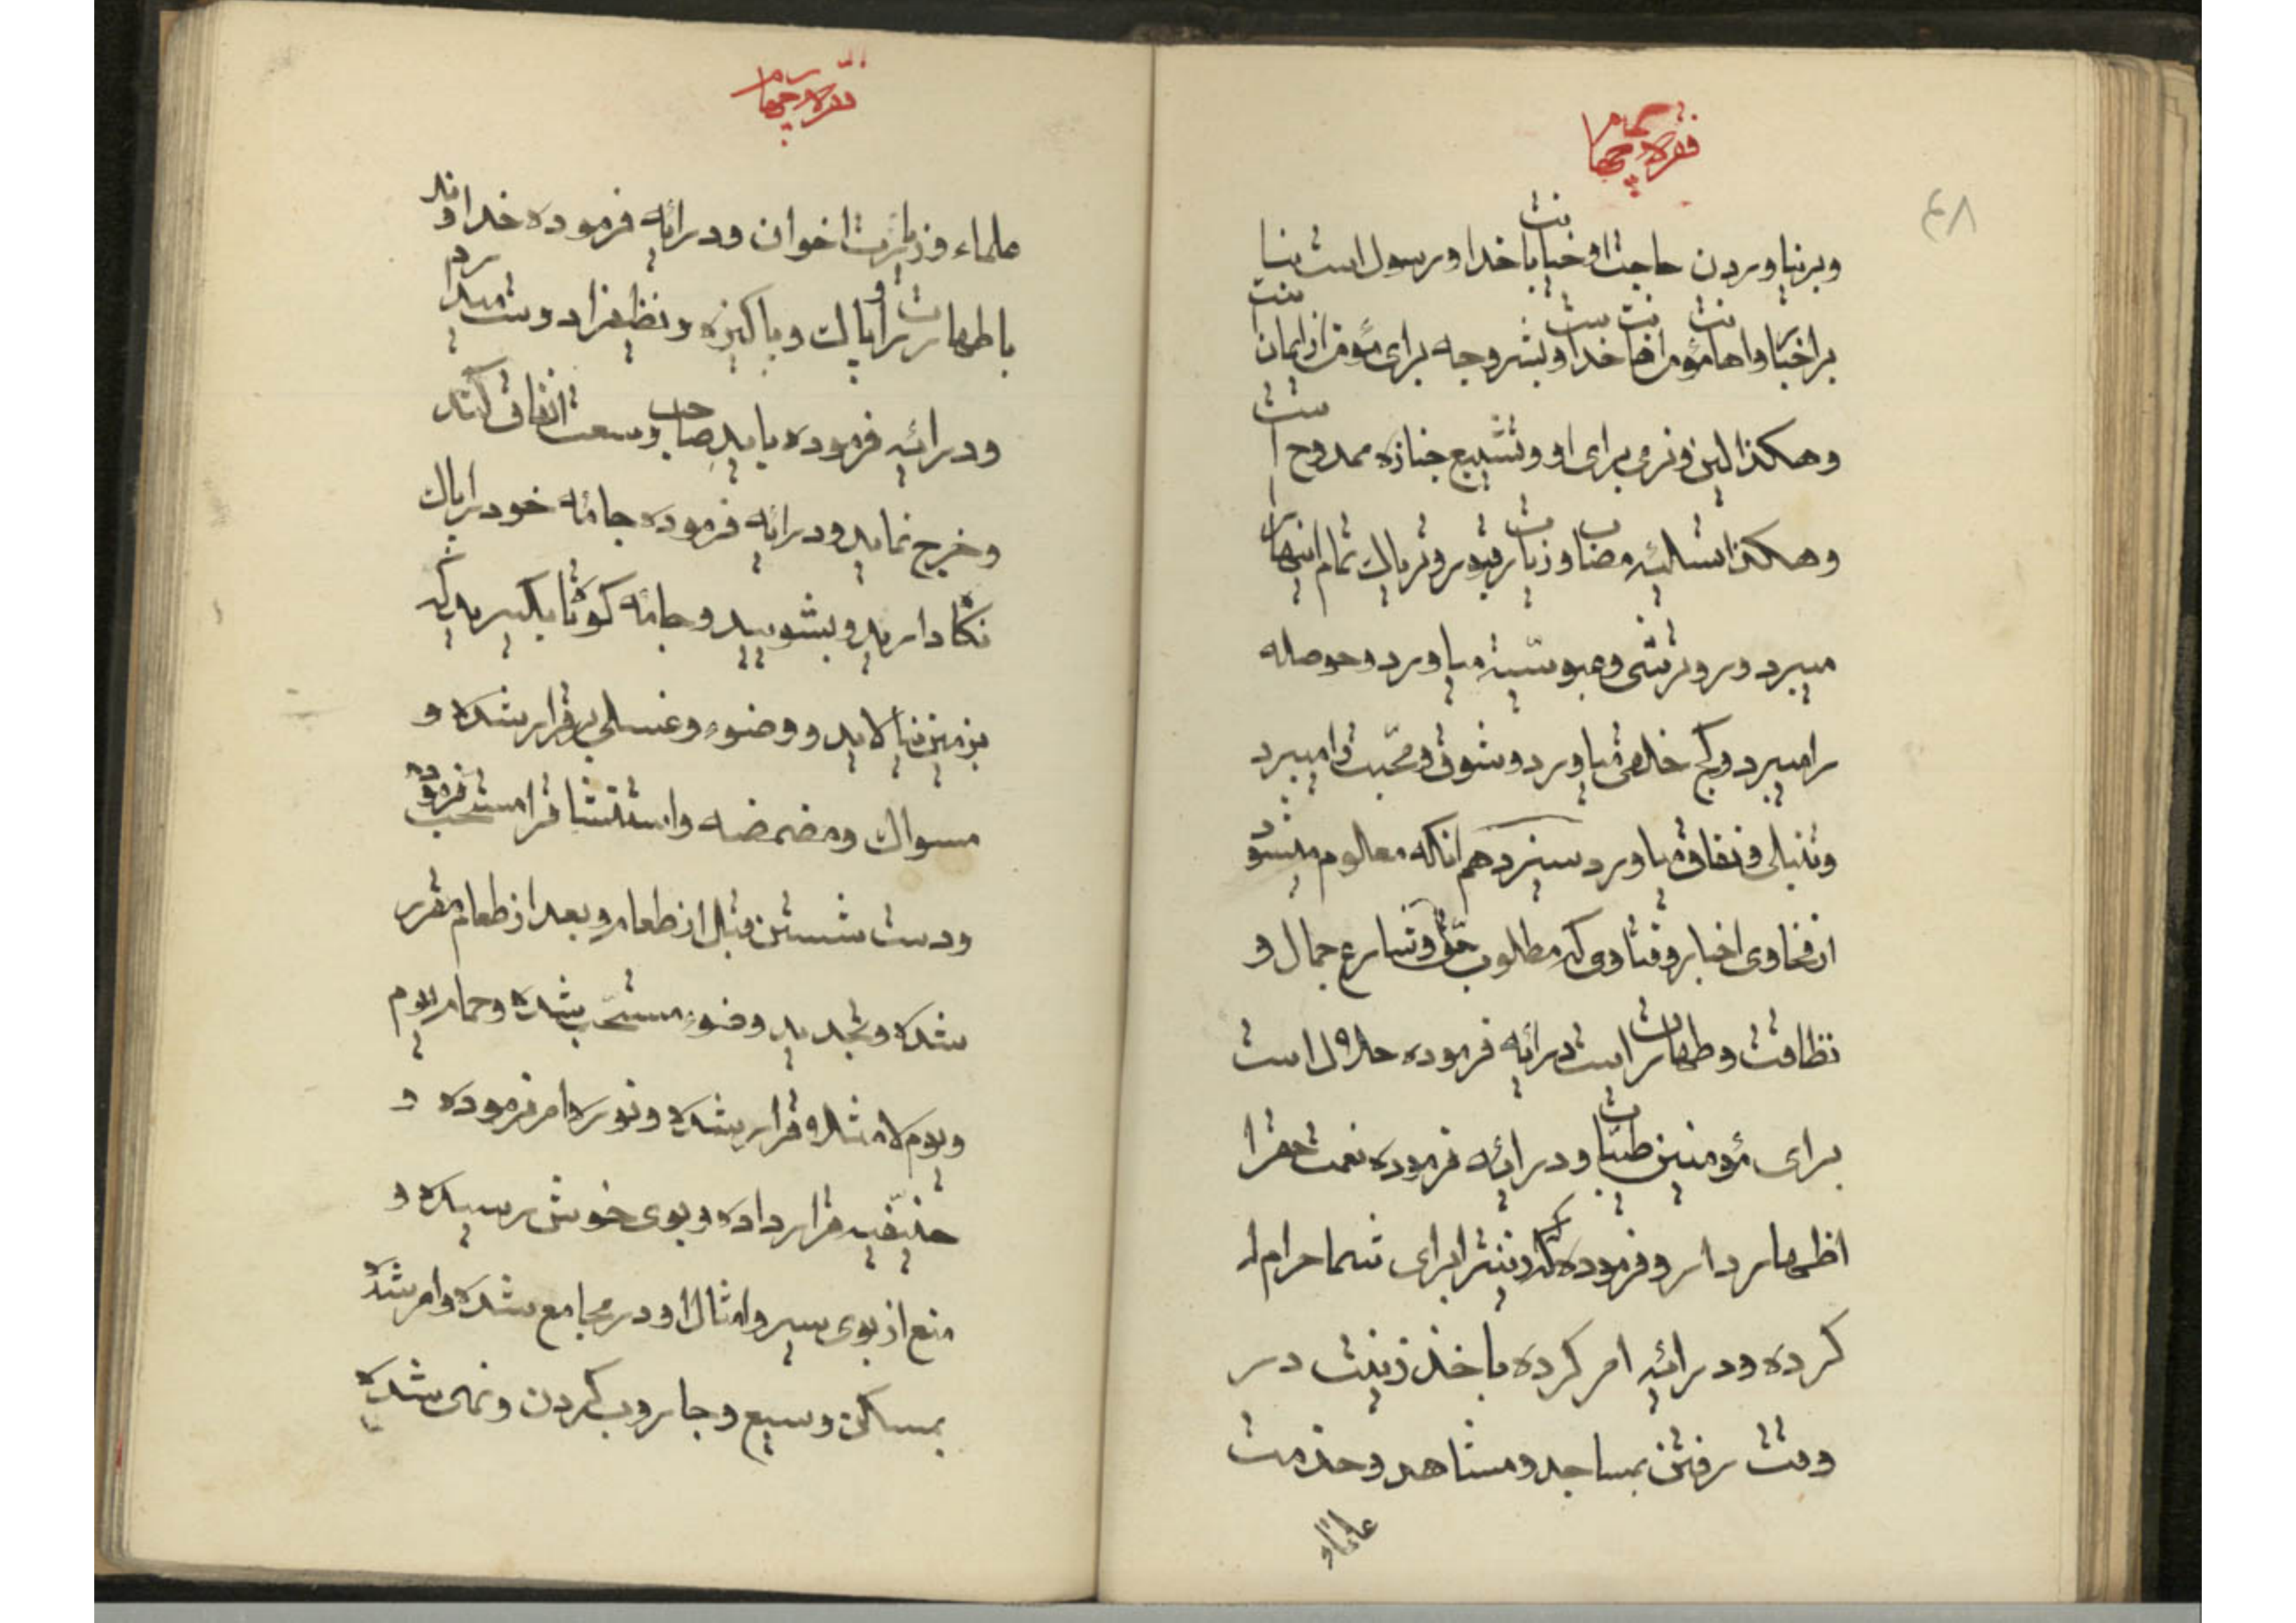 فقره چهارم
۴۸
وبرنیاوردن حاجت او خیانت با خدا و رسول است بنا
بر اخبار واهانت مؤمن اهانت خداست وبشر وجه برای مؤمن از ایمان
است
وهکذا لین ونرمی برای او وتشییع جنازه ممدوح
وهکذا تسلیه مصاب وزیارت قبور وتریاك تمام اینها را
میبرد وروترشی وعبوسیّة میاورد وحوصله
را میبرد وکج خلقی میاورد وشوق ومحبت را میبرد
وتنبلی ونفاق میاورد سیزدهم انکه معلوم میشود
از فحاوی اخبار وفتاوی که مطلوب حق وشارع جمال و
نظافت وطهارت است در ایه فرموده حلال است
برای مؤمنین طیبات ودر ایه فرموده نعمت حقرا
اظهار دار وفرموده که زینترا برای شما حرام
کرده ودر ایه امر کرده باخذ زینت در
وقت رفتن بمساجد ومشاهد وخدمت
علماء و
فقره چهارم
علماء وزیارت اخوان ودر ایه فرموده خداوند
با طهارت را وپاك وپاکیزه ونظیفرا دوست میدارم
ودر ایه فرموده باید صاحب وسعت انفاق کند
وخرج نماید ودر ایه فرموده جامه خود را پاك
نگاه دارید وبشویید وجامه کوتاه بگیرید که
بزمین نیالاید ووضوء وغسلی برقرار شده و
مسواك ومضمضه واستنشاق را مستحب فرموده
ودست شستن قبل از طعام وبعد از طعام مقرر
شده وتجدید وضوء مستحب شده وحمام یوم
ویوم لا مثلاً قرار شده ونوره امر فرموده و
حنیفیه قرار داده وبوی خوش رسیده و
منع از بوی سیر وامثال او در مجامع شده وامر شده
بمسکن وسیع وجاروب کردن ونهی شده